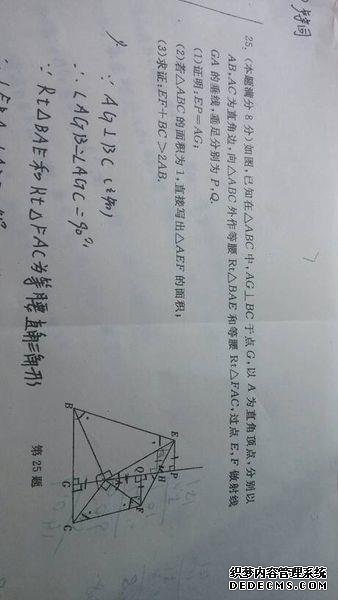 25. (本题满分 8 分)如图,已知在△ABC中,AG⊥BC于点G,以A为直角顶点,分别以
AB、AC为直角边,向△ABC外作等腰Rt△BAE和等腰Rt△FAC,过点E、F做射线
GA的垂线,垂足分别为P、Q.
(1)证明:EP=AG;
(2)若△ABC的面积为1,直接写出△AEF的面积;
(3)求证:EF+BC>2AB.
∵ AG⊥BC (已知)
∴ ∠AGB=∠AGC=90°
∵ Rt△BAE和Rt△FAC为等腰直角三角形
E
P
H
Q
F
B
G
C
第25题
织梦内容管理系统